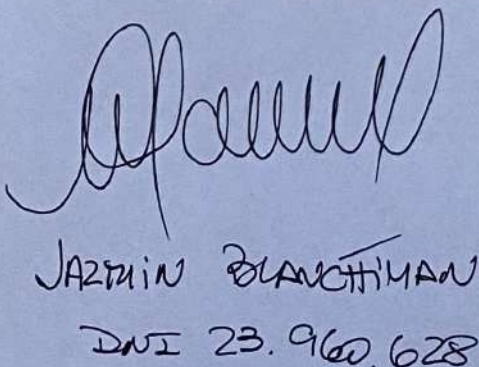 JAZMIN BLANCHIMAN
DNI 23.960.628